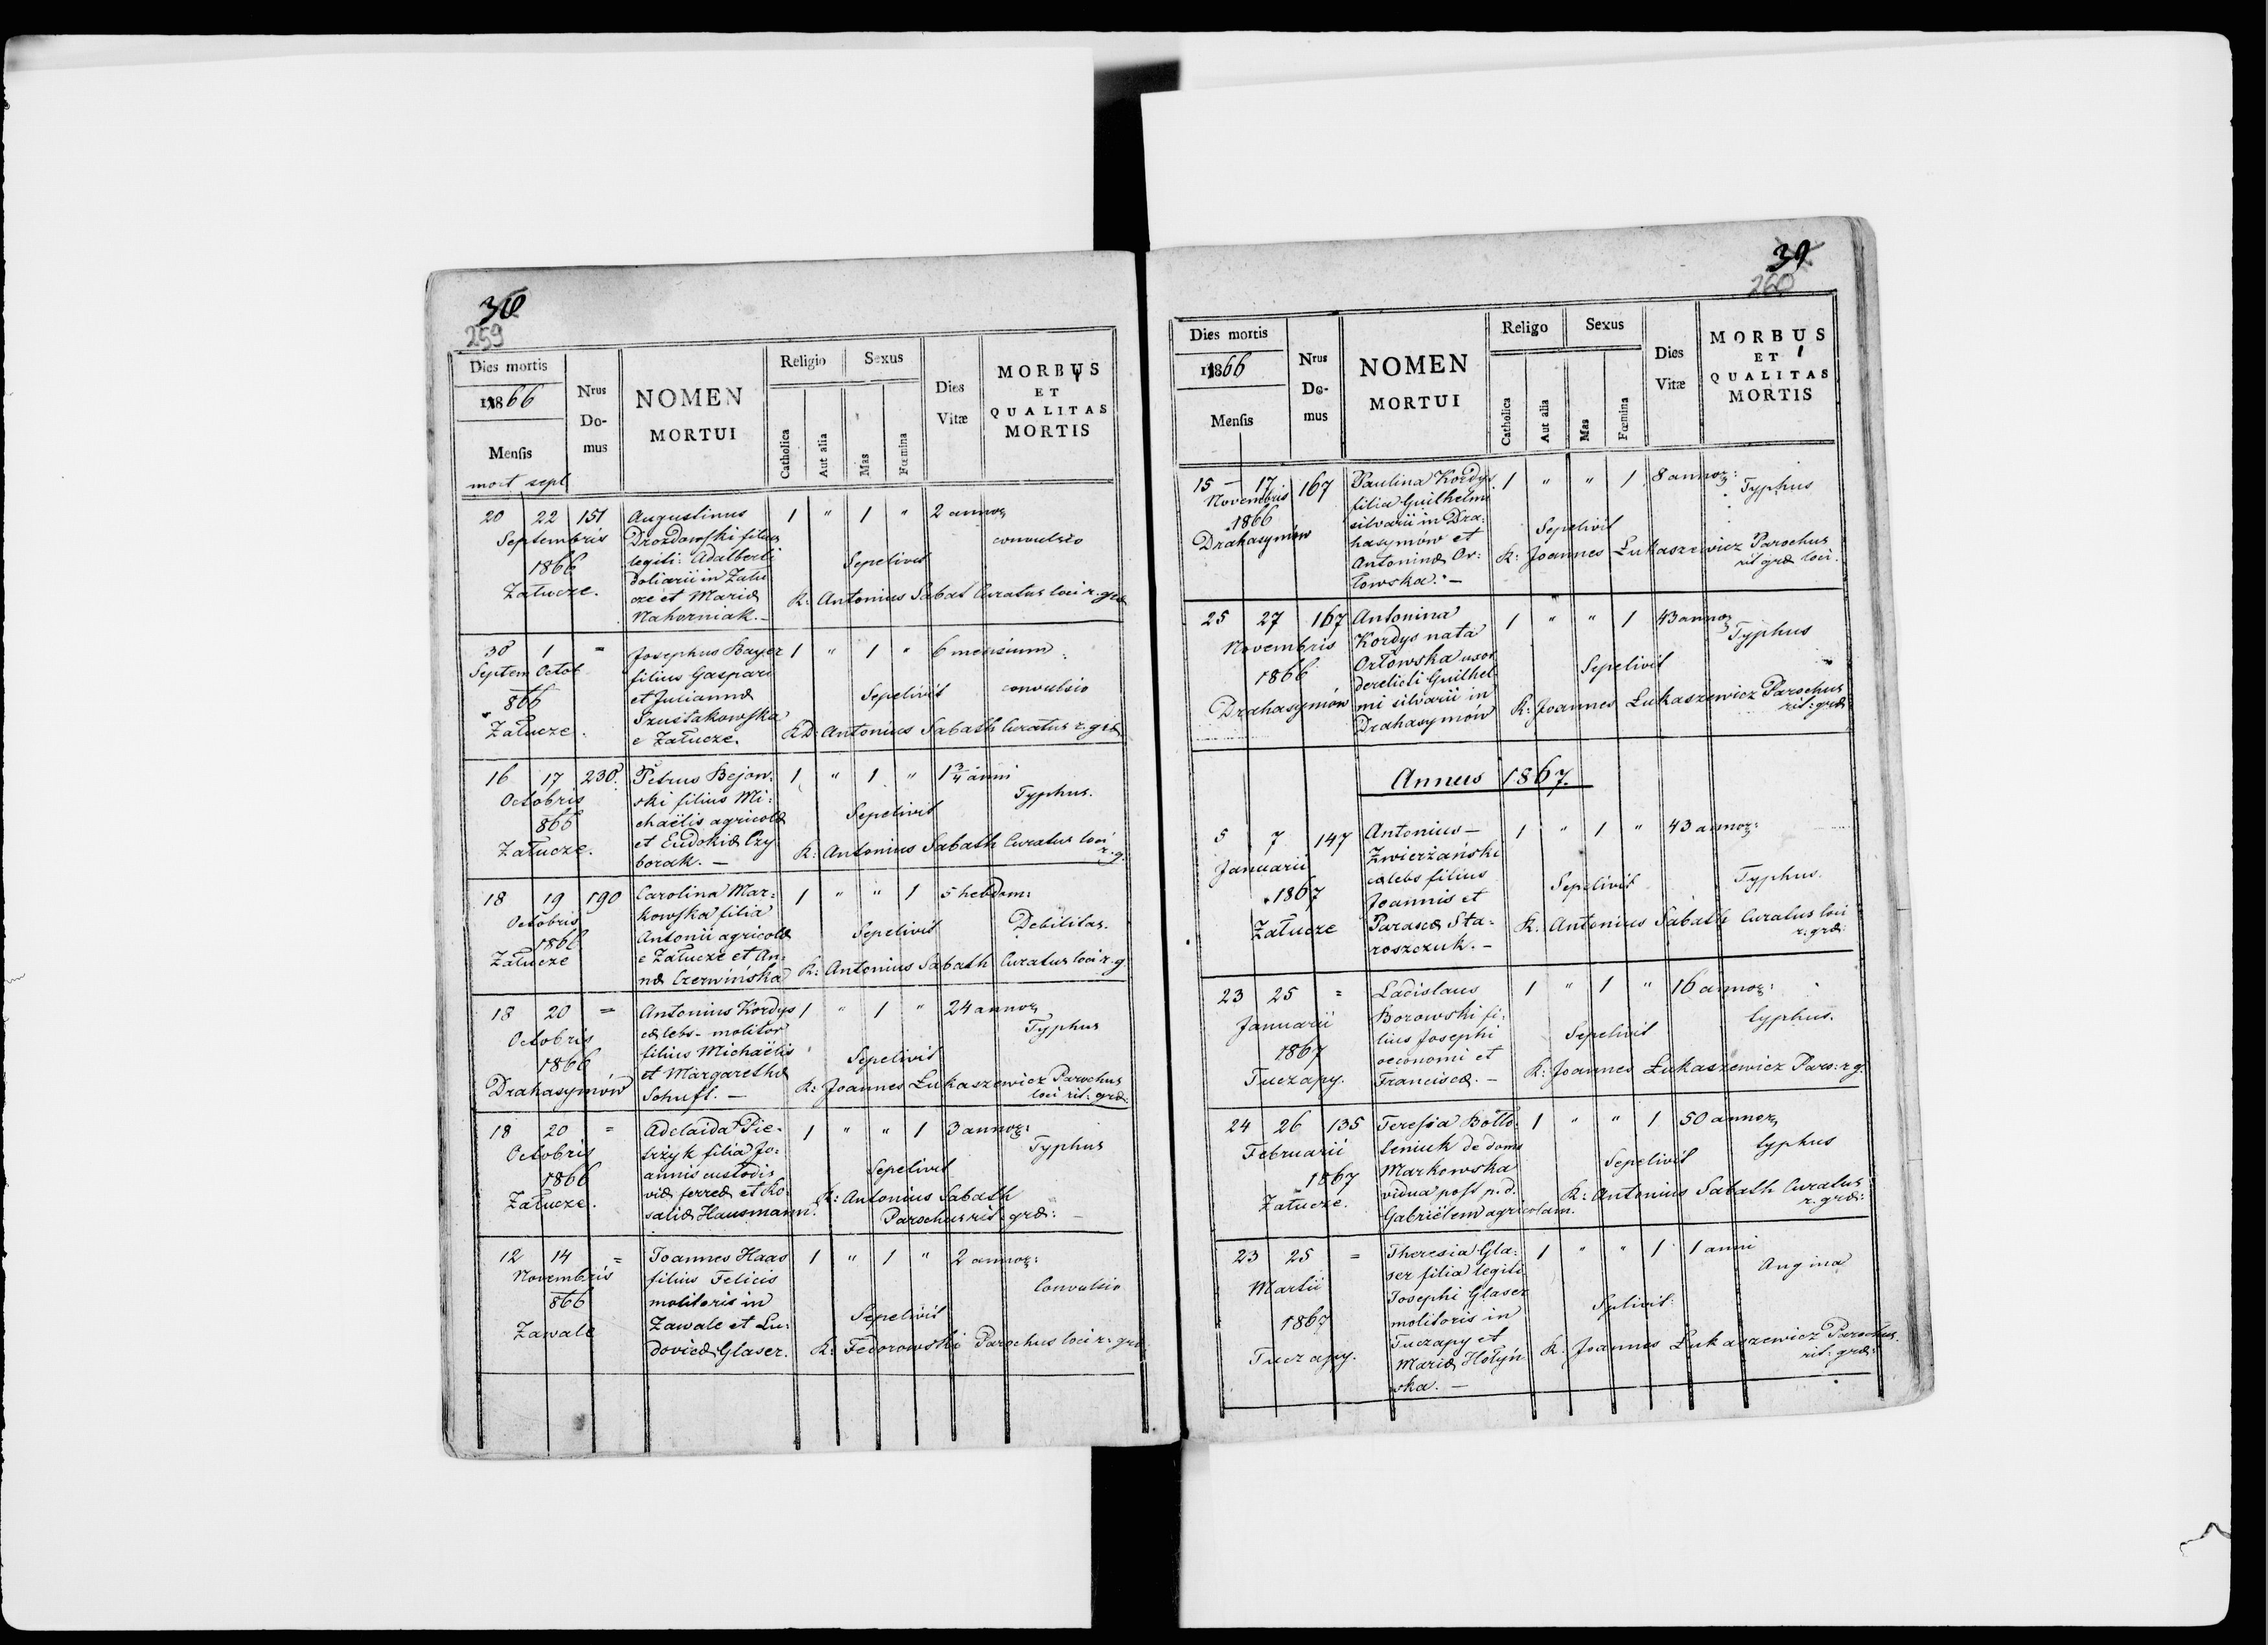 38
259
Dies mortis
1866
Mensis
mort sepl
Nrus
Do-
mus
NOMEN
MORTUI
Religio
Sexus
Catholica
Aut alia
Mas
Fœmina
Dies
Vitæ
MORBUS
ET
QUALITAS
MORTIS
20 22 151 Augustinus 1 " 1 " 2 annoz
Septembris Drozdowski filius convulsio
1866 legiti: Adalberti Sepelivit
Załucze. doliarii in Zału
cze et Mariæ R: Antonius Sabat Curatus loci r. græ
Nahorniak. —
30 1 = Josephus Bayer 1 " 1 " 6 mensium
Septem Octob filius Gaspari
866 et Juliannæ Sepelivit convulsio
Załucze. Szustakowska
e Załucze. RD: Antonius Sabath Curatus r. græ
16 17 230. Petrus Bejow- 1 " 1 " 1 3/4 anni
Octobris ski filius Mi: Typhus.
866 chaëlis agricolæ Sepelivit
Załucze. et Eudokiæ Czy
borak. — R: Antonius Sabath Curatus loci
r. g.
18 19 190 Carolina Mar: 1 " " 1 5 hebdom:
Octobris kowska filia
1866 Antonii agricolæ Sepelivit Debilitas.
Załucze e Załucze et An-
næ Czerwińska R: Antonius Sabath Curatus loci r. g.
18 20 = Antonius Kordys 1 " 1 " 24 annoz
Octobris cælebs - molitor Typhus
1866 filius Michaëlis Sepelivit
Drahasymów et Margarethæ R: Joannes Łukaszewicz Parochus
Schuft. — loci rit: græ:
18 20 = Adelaida Pie- 1 " " 1 3 annoz:
Octobris trzyk filia Jo- Typhus
1866 annis custodis Sepelivit
Załucze. viæ ferreæ et Ro-
saliæ Hausmann. R: Antonius Sabath
Parochus rit. græ: —
12 14 = Joannes Haas 1 " 1 " 2 annoz:
Novembris filius Felicis Convulsio
866 molitoris in Sepelivit
Zawale Zawale et Lu-
dovicæ Glaser. R: Fedorowski Parochus loci r: græ
39
260
Dies mortis
1866
Mensis
Nrus
Do-
mus
NOMEN
MORTUI
Religo
Sexus
Catholica
Aut alia
Mas
Fœmina
Dies
Vitæ
MORBUS
ET
QUALITAS
MORTIS
15 — 17 167 Paulina Kordys 1 " " 1 8 annoz:
Novembris filia Guilhelmi Typhus
1866 silvarii in Dra: Sepelivit
Drahasymów hasymów et
Antoninæ Or: R: Joannes Łukaszewicz Parochus
łowska. — rit græ loci.
25 27 167 Antonina 1 " " 1 43 annoz
Novembris Kordys nata Typhus
1866 Orłowska uxor Sepelivit
derelicti Guilhel-
Drahasymów mi silvarii in R: Joannes Łukaszewicz Parochus
Drahasymów rit: græ
Annus 1867.
5 7 147 Antonius — 1 " 1 " 43 annoz:
Januarii Zwierżański
1867 cælebs filius Sepelivit Typhus.
Joannis et
Załucze Parascæ Sta- R: Antonius Sabath Curatus loci
roszczuk. — r. græ:
23 25 = Ladislaus 1 " 1 " 16 annoz:
Januarii Borowski fi- typhus.
1867 lius Josephi Sepelivit
oeconomi et
Tuczapy. Franciscæ. — R: Joannes Łukaszewicz Paro: r g.
24 26 135 Teresia Botto- 1 " " 1 50 annoz
Februarii leniuk de domo typhus
1867 Markowska Sepelivit
Załucze. vidua post p.d. R: Antonius Sabath Curatus
Gabriëlem agricolam. r. græ:
23 25 = Theresia Gla- 1 " " 1 1 anni
Martii ser filia legiti Angina
Josephi Glaser
1867 molitoris in Splivit:
Tuczapy et
Tuczapy. Mariæ Hołyń R. Joannes Łukaszewicz Parochus
ska. — rit: græ: